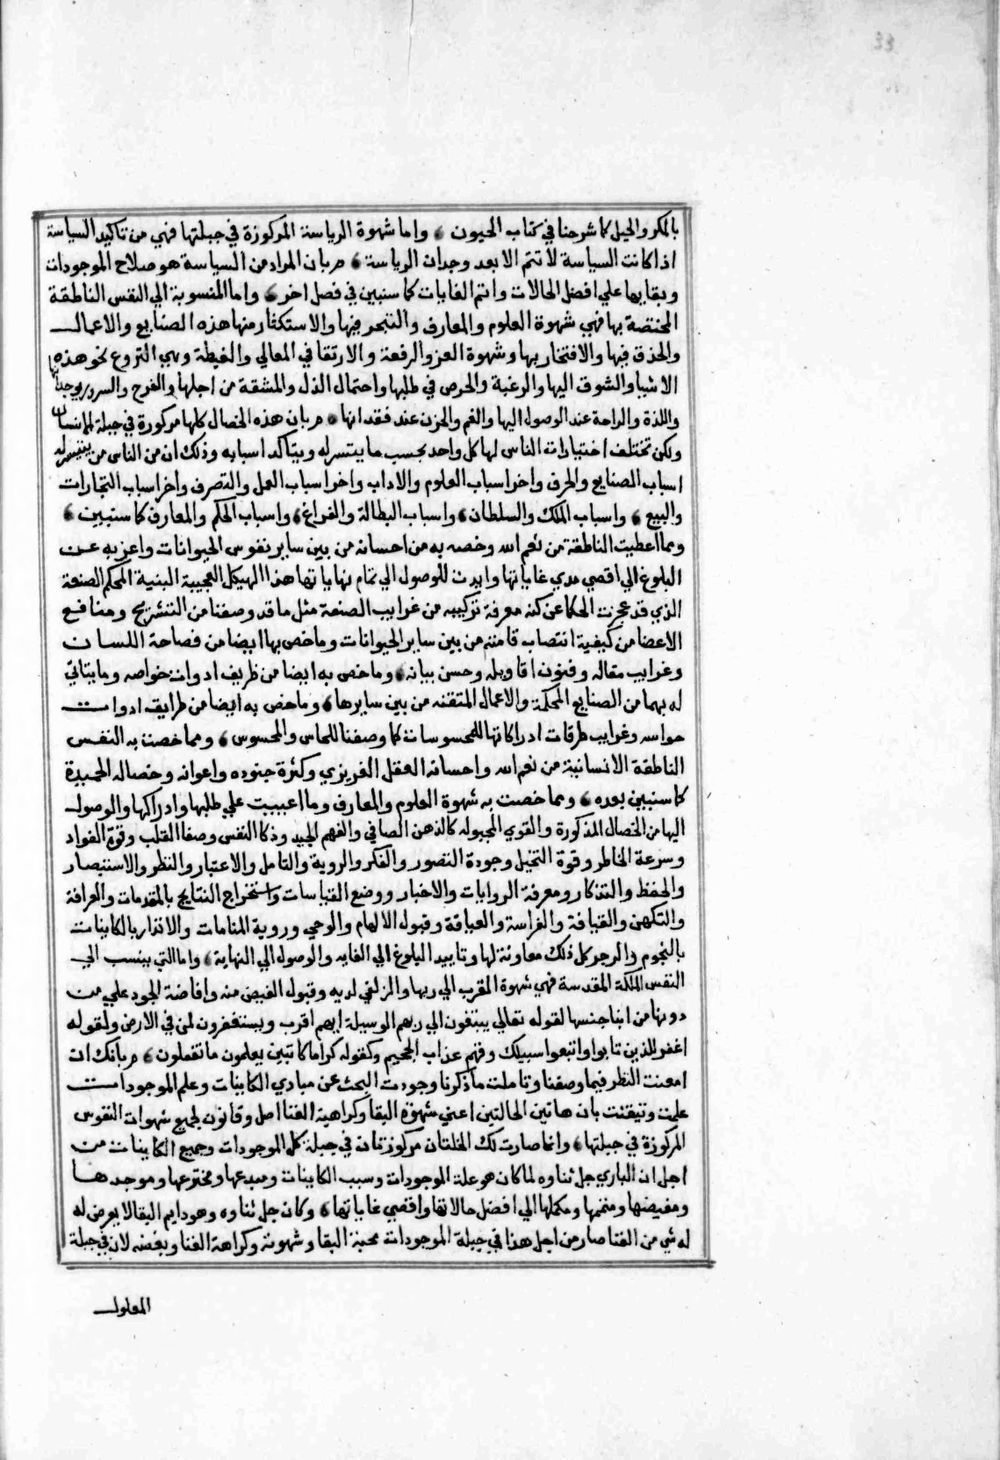 33
بالمكر والحيل كما شرحنا في كتاب الحيوان ، واما شهوة الرياسة المركوزة في جبلتها فهي من تاكيد السياسة
اذا كانت السياسة لا تتم الا بعد وجدان الرياسة ، مربان المراد من السياسة هو صلاح الموجودات
وبقايها علي افضل الحالات واتم الغايات كما سنبين في فصل اخر ، واما المنسوبة الي النفس الناطقة
المختصة بها فهي شهوة العلوم والمعارف والتبحر فيها والاستكثار منها هذه الصنايع والاعمال
والحذق فيها والافتخار بها وشهوة العز والرفعة والارتقا في المعالي والغبطة وهي النزوع نحو هذه
الاشيا والشوق اليها والرغبة والحرص في طلبها واحتمال الذل والمشقة من اجلها والفرح والسرور بوجدانها
واللذة والراحة عند الوصول اليها والغم والحزن عند فقدانها ، مربان هذه الخصال كلها مركوزة في جبلة الانسان
ولكن تختلف اختيارات الناس لها كل واحد بحسب ما يتسر له ويتاكد اسبابه وذلك ان من الناس من يتيسر له
اسباب الصنايع والحرف واخر اسباب العلوم والاداب واخر اسباب العمل والتصرف واخر اسباب التجارات
والبيع ، واسباب الملك والسلطان ، واسباب البطالة والفراغ ، واسباب الحكم والمعارف كما سنبين ،
ومما اعطيت الناطقة من نعم الله وخصه به من احسانه من بين ساير نفوس الحيوانات واعز به عن
البلوغ الي اقصي مدي غاياتها وايدت للوصول الي تمام نهاياتها هذا الهيكل العجيبة البنية المحكم الصنعة
الذي قد عجزت الحكما عن كنه معرفة تركيبه من غرايب الصنعة مثل ما قد وصفنا من التشريح ومنافع
الاعضا من كيفية انتصاب قامته من بين ساير الحيوانات وما خص بها ايضا من فصاحة اللسان
وغرايب مقاله وفنون اقاويله وحسن بيانه ، وما خص به ايضا من ظريف ادوات خواصه وما يتاتي
له بهما من الصنايع المحكمة والاعمال المتقنه من بين سايرها ، وما خص به ايضا من طرايف ادوات
حواسه وغرايب طرقات ادراكاتها للمحسوسات كما وصفنا للحاس والمحسوس ، ومما خصت به النفس
الناطقة الانسانية من نعم الله واحسانه العقل الغريزي وكثرة جنوده واعوانه وخصاله الحميدة
كما سنبين بعده ، ومما خصت به شهوة العلوم والمعارف وما اعينت علي طلبها وادراكها والوصول
اليها من الخصال المذكورة والقوي المجبوله كالذهن الصافي والفهم الجيد وذكا النفس وصفا القلب وقوة الفواد
وسرعة الخاطر وقوة التخيل وجودة التصور والفكر والروية والتامل والاعتبار والنظر والاستبصار
والحفظ والتذكار ومعرفة الروايات والاخبار ووضع القياسات واستخراج النتايج بالمقدمات والعرافة
والتكهن والقيافة والفراسة والعيافة وقبول الالهام والوحي وروية المنامات والانذار بالكاينات
بالنجوم والرجر كل ذلك معاونة لها وتاييد البلوغ الي الغايه والوصول الي النهاية ، واما التي ينسب الي
النفس الملكة المقدسة فهي شهوة القرب الي ربها والزلفي لديه وقبول الفيض منه وافاضة الجود علي من
دونها من ابنا جنسها لقوله تعالي يبتغون الي ربهم الوسيلة ايهم اقرب ويستغفرون لمن في الارض ولقوله
اغفر للذين تابوا واتبعوا سبيلك وقهم عذاب الجحيم وكقوله كراما كاتبين يعلمون ما تفعلون ، مربانك ان
امعنت النظر فيما وصفنا وتاملت ما ذكرنا وجودت البحث عن مبادي الكاينات وعلم الموجودات
علمت وتيقنت بان هاتين الحالتين اعني شهوة البقا وكراهية الفنا اصل وقانون لجميع شهوات النفوس
المركوزة في جبلتها ، وانما صارت تلك الخلتان مركوزتان في جبلة كل الموجودات وجميع الكاينات من
اجل ان الباري جل ثناوه لما كان هو علة الموجودات وسبب الكاينات ومبدعها ومخترعها وموجدها
ومفيضها ومتممها ومكملها الي افضل حالاتها واقصي غاياتها ، وكان جل ثناوه وهو دايم البقا لا يعرض له
له شي من الفنا صار من اجل هذا في جبلة الموجودات محبة البقا وشهوته وكراهة الفنا وبغضه لان في جبلة
المعلول